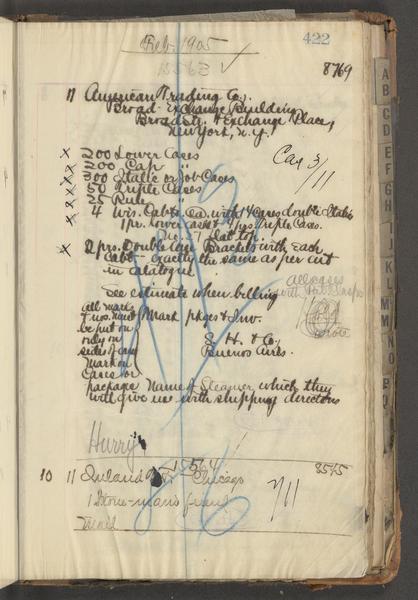 Feb. 1905
422
15563 ✓
8769
11 American Trading Co.,
Broad-Exchange Building
Broad St. & Exchange Place,
New York, N.Y.
200 Lower Cases
200 Cap "
300 Italic or Job Cases
50 Triple Cases
25 Rule "
Cas 3/11
4 Wis. Cabts. ea. with 14 Cases double Italic
1 pr. lower case & Triple Cases.
flat top
2 prs. Double Lean Brackets with each
Cabt - exactly the same as per cut
in catalogue
See estimate when billing
all cases
with
all marks
& nos. must
be put on
only on
sides of
Mark on
Cases or
package
Mark pkges & Inv.
S. H. & Co.,
Buenos Aires.
wrote
Name of Steamer, which they
will give us with shipping directions
Hurry
15564
8545
10 11 Inland Chicago
7/11
1 Stone-man's
Mail
A
B
C
D
E
F
G
H
I
J
K
L
M
N
O
P
Q